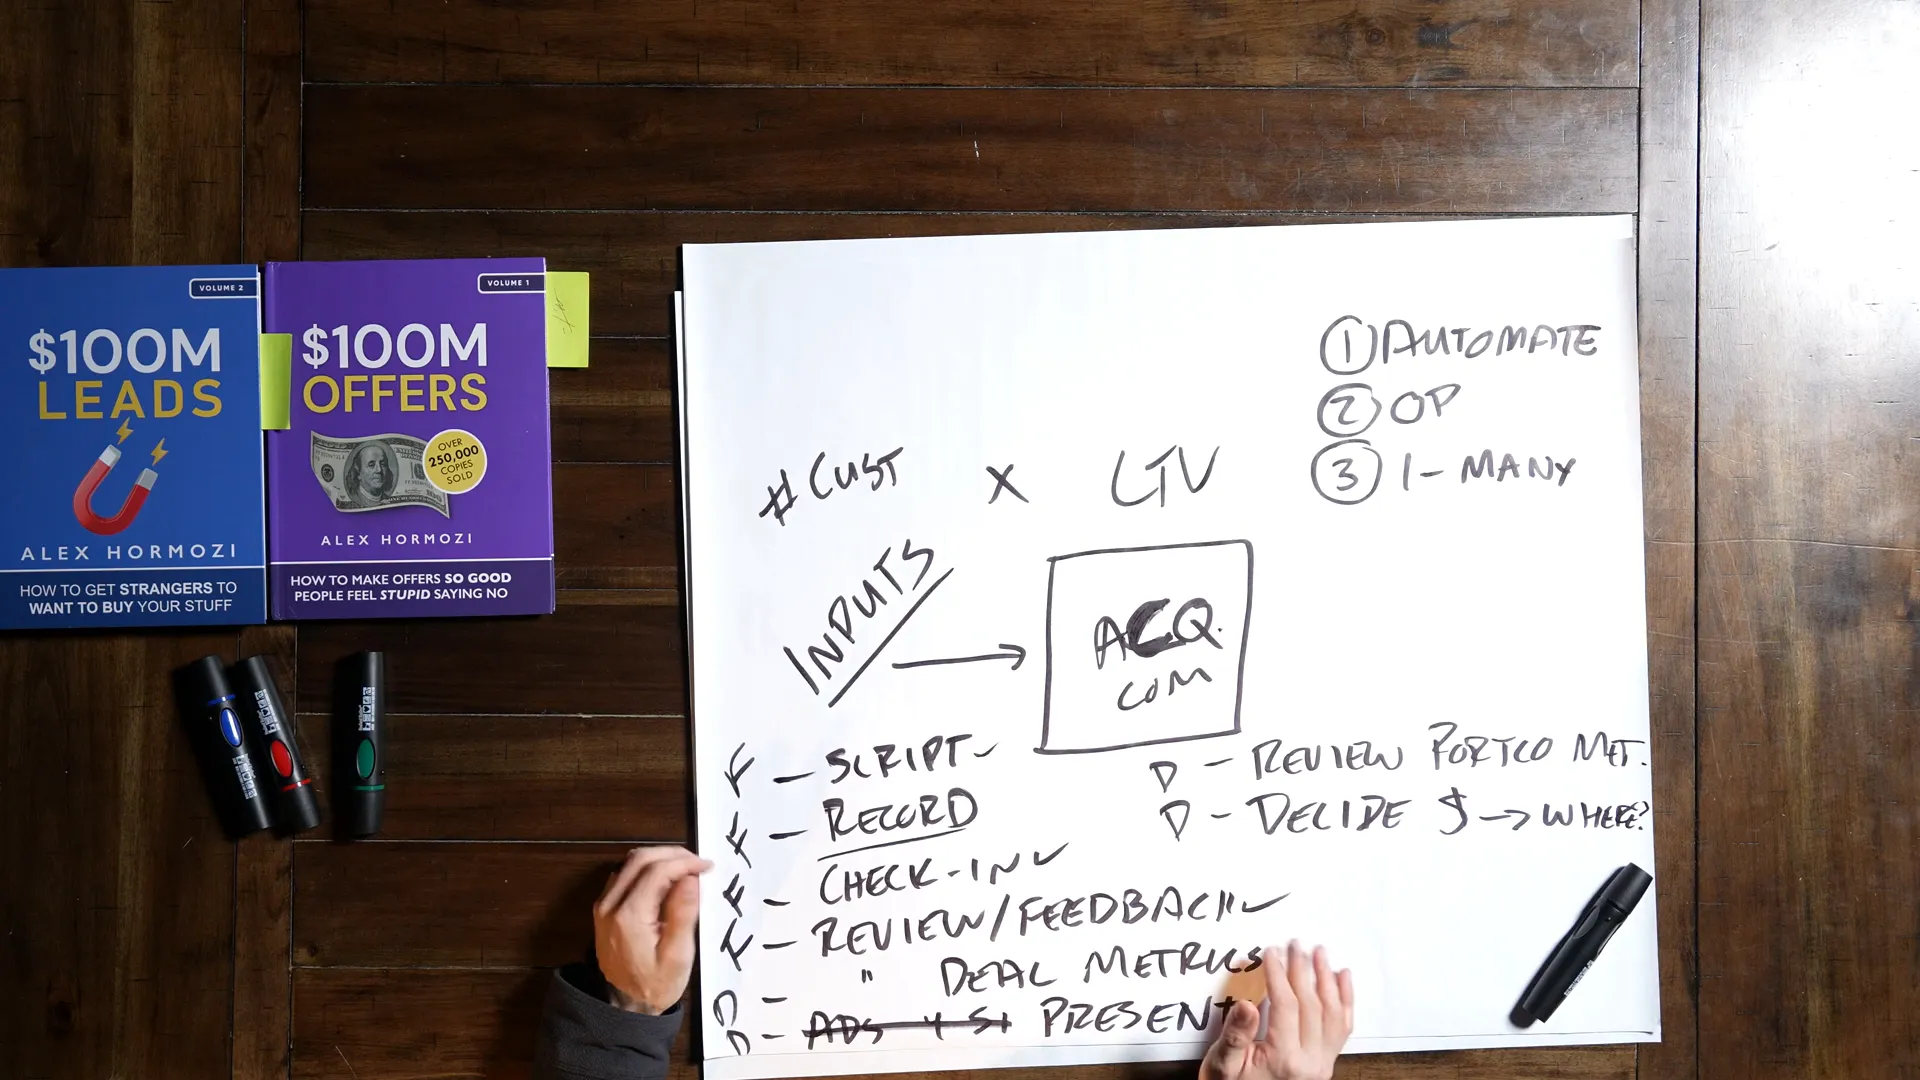 VOLUME 2
$100M
LEADS
ALEX HORMOZI
HOW TO GET STRANGERS TO
WANT TO BUY YOUR STUFF
VOLUME 1
$100M
OFFERS
OVER
250,000
COPIES
SOLD
ALEX HORMOZI
HOW TO MAKE OFFERS SO GOOD
PEOPLE FEEL STUPID SAYING NO
① AUTOMATE
② OP
③ 1 - MANY
#CUST x LTV
INPUTS → ACQ.
COM
F - SCRIPT
F - RECORD
F - CHECK-IN ✓
F - REVIEW/FEEDBACK ✓
D - " DEAL METRICS
D - ADS PRESENT
D - REVIEW PORTCO MET.
D - DECIDE $ → WHERE?